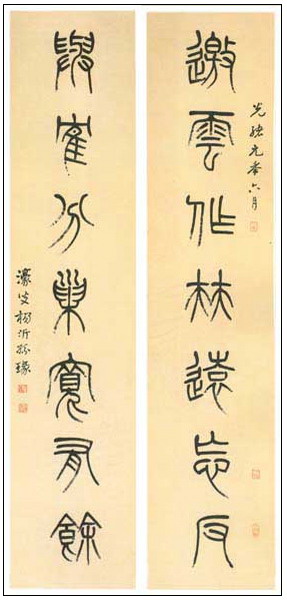 邀雲作林遠忘反
光緒元年六月
與隺分巢寬有餘
濠叟楊沂孫篆